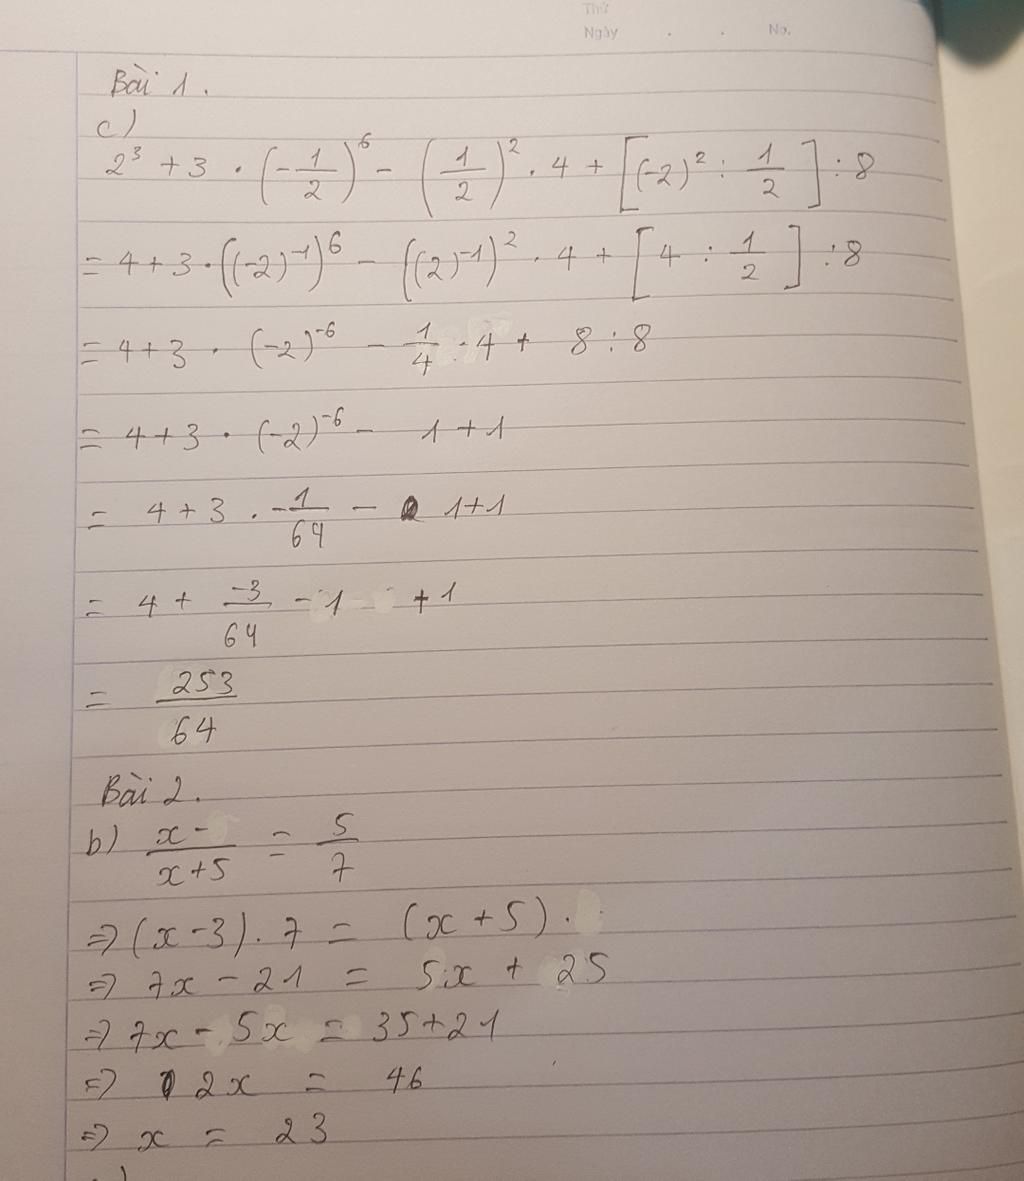 Thứ
Ngày . . No.
Bài 1.
c)
2³ + 3 . (-1/2)⁶ - (1/2)² . 4 + [(-2)² : 1/2] : 8
= 4 + 3 . ((-2)⁻¹)⁶ - ((2)⁻¹)² . 4 + [4 : 1/2] : 8
= 4 + 3 . (-2)⁻⁶ - 1/4 . 4 + 8 : 8
= 4 + 3 . (-2)⁻⁶ - 1 + 1
= 4 + 3 . -1/64 - 1 + 1
= 4 + -3/64 - 1 + 1
= 253/64
Bài 2.
b) x - / x + 5 = 5/7
=> (x - 3) . 7 = (x + 5) .
=> 7x - 21 = 5x + 25
=> 7x - 5x = 35 + 21
=> 2x = 46
=> x = 23